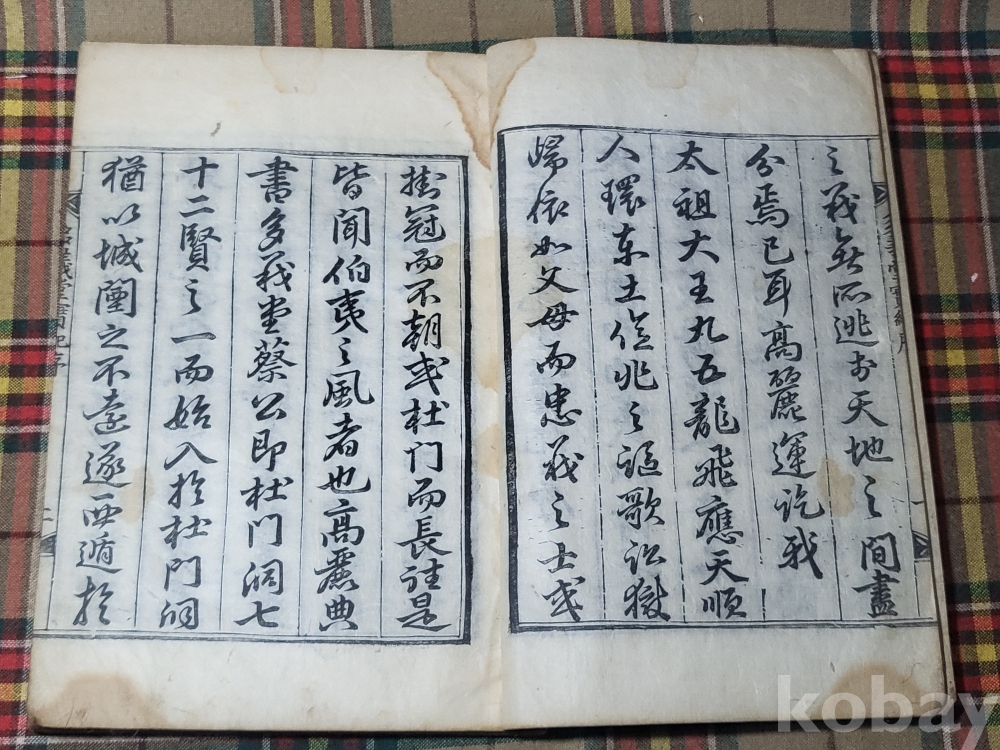 之義無所逃於天地之間盡
分焉已耳高麗運訖我
太祖大王九五龍飛應天順
人環東土億兆之謳歌訟獄
歸依如父母而忠義之士或
掛冠而不朝或杜门而長往是
皆聞伯夷之風者也高麗典
書多義堂蔡公即杜门洞七
十二賢之一而始入於杜門洞
猶以城闉之不遠遂西遁於
一
二
kobay